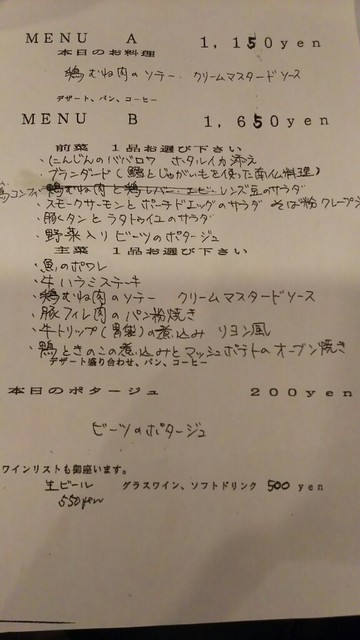 MENU A 1,150yen
本日のお料理
鶏むね肉のソテー クリームマスタードソース
デザート、パン、コーヒー
MENU B 1,650yen
前菜 1品お選び下さい
・にんじんのババロワ ホタルイカ添え
・ブランダード(鱈とじゃがいもを使った南仏料理)
コンフィ レンズ豆のサラダ
・スモークサーモンとポーチドエッグのサラダ そば粉クレープ
・豚タンとラタトゥイユのサラダ
・野菜入りビーツのポタージュ
主菜 1品お選び下さい
・魚のポワレ
・牛ハラミステーキ
・鶏むね肉のソテー クリームマスタードソース
・豚フィレ肉のパン粉焼き
・牛トリップ(胃袋)の煮込み リヨン風
・鴨ときのこの煮込みとマッシュポテトのオーブン焼き
デザート盛り合わせ、パン、コーヒー
本日のポタージュ 200yen
ビーツのポタージュ
ワインリストも御座います。
生ビール グラスワイン、ソフトドリンク 500yen
550yen